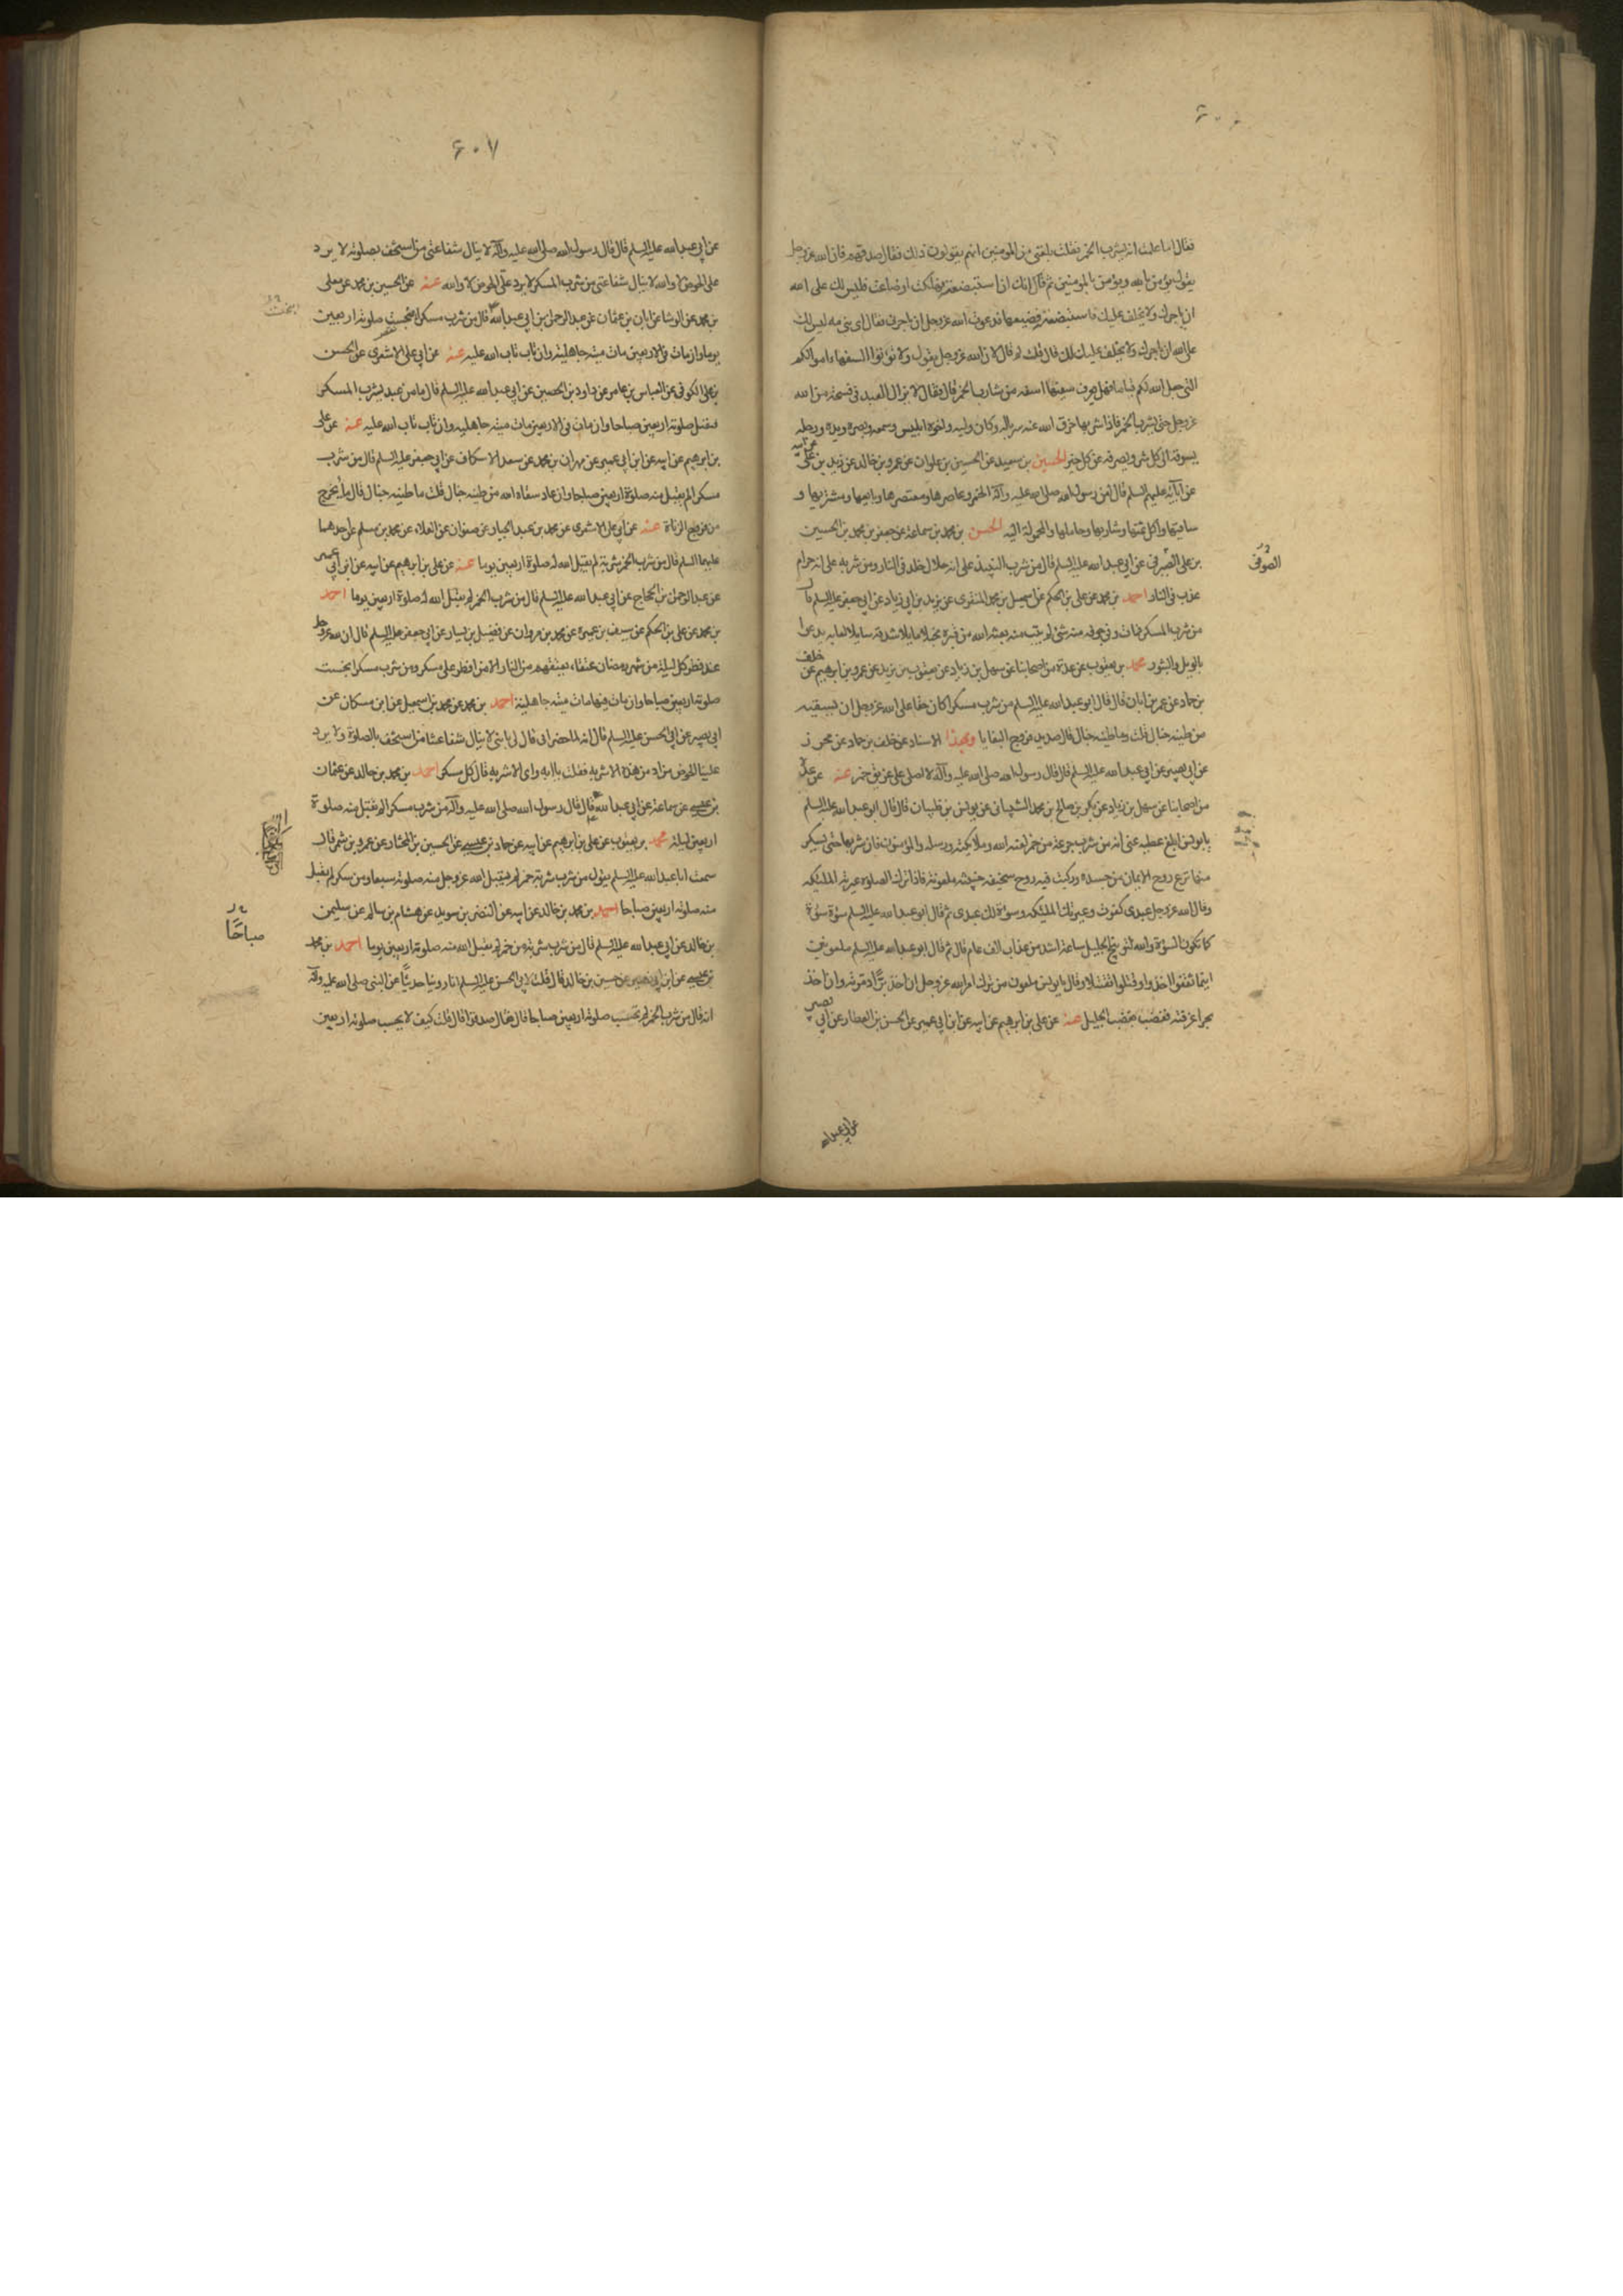 ٦٠٦
فقال اما علمت انه يشرب الخمر فقلت بلغنى من المؤمنين انهم يقولون ذلك فقال صدقهم فان الله عز وجل
يقول يؤمن بالله ويؤمن للمؤمنين ثم قال انك ان استبضعته فهلكت او ضاعت فليس لك على الله
ان ياجرك ولا يخلف عليك فاستبضعته فضيعها فدعوت الله عز وجل ان ياجرنى فقال اى بنى مه ليس لك
على الله ان ياجرك ولا يخلف عليك قال قلت له ولم قال لان الله عز وجل يقول ولا تؤتوا السفهاء اموالكم
التى جعل الله لكم قياما فهل تعرف سفيها اسفه من شارب الخمر قال فقال لا يزال العبد فى فسحة من الله
عز وجل حتى يشرب الخمر فاذا شربها خرق الله عنه سرباله وكان وليه واخوه ابليس وسمعه وبصره ويده ورجله
يسوقه الى كل شر ويصرفه عن كل خير الحسين بن سعيد عن الحسين بن علوان عن عمرو بن خالد عن زيد بن على عن ابيه
عن آبائه عليهم السلم قال لعن رسول الله صلى الله عليه وآله الخمر وعاصرها ومعتصرها وبايعها ومشتريها و
ساقيها وآكل ثمنها وشاربها وحاملها والمحمولة اليه الحسن بن محمد بن سماعة عن جعفر بن محمد بن الحسين
بن على الصيرفى عن ابى عبد الله عليه السلم قال من شرب النبيذ على انه حلال خلد فى النار ومن شربه على انه حرام
الصوفى
عذب فى النار احمد بن محمد عن على بن الحكم عن اسمعيل بن محمد المنقرى عن يزيد بن ابى زياد عن ابى جعفر عليه السلم قال
من شرب المسكر فمات وفى جوفه منه شئ لم يتب منه بعثه الله من قبره مخبلا مايلا شدقه سايلا لعابه يدعوا
بالويل والثبور محمد بن يعقوب عن عدة من اصحابنا عن سهل بن زياد عن يعقوب بن يزيد عن عمرو بن ابرهيم عن خلف
بن حماد عن عمر بن ابان قال قال ابو عبد الله عليه السلم من شرب مسكرا كان حقا على الله عز وجل ان يسقيه
من طينة خبال قلت وما طينة خبال قال صديد فروج البغايا وبهذا الاسناد عن خلف بن حماد عن محرز
عن ابى بصير عن ابى عبد الله عليه السلم قال قال رسول الله صلى الله عليه وآله لا اصلى على غريق خمر عنه عن عدة
من اصحابنا عن سهل بن زياد عن بكر بن صالح بن محمد الشيبانى عن يونس بن ظبيان قال قال ابو عبد الله عليه السلم
يا يونس ابلغ عطية عنى انه من شرب جرعة من خمر لعنه الله وملائكته ورسله والمؤمنون فان شربها حتى يسكر
منها نزع روح الايمان من جسده وركبت فيه روح سخيفة خبيثة ملعونة فاذا ترك الصلوة عيرته الملئكة
وقال الله عز وجل عبدى كفرت وعيرتك الملئكة وسوءة لك عبدى ثم قال ابو عبد الله عليه السلم سوءة سوءة
كما تكون السوءة والله لتوبيخ الجليل ساعة اشد من عذاب الف عام قال ثم قال ابو عبد الله عليه السلم ملعونين
اينما ثقفوا اخذوا وقتلوا تقتيلا وقال يا يونس ملعون من ترك امر الله عز وجل ان اخذ برا دمرته وان اخذ
بحرا غرقته فغضب بغضب الجليل عنه عن على بن ابرهيم عن ابيه عن ابن ابى عمير عن الحسن بن العطار عن ابى بصير
عن ابى عبد الله
٦٠٧
عن ابى عبد الله عليه السلم قال قال رسول الله صلى الله عليه وآله لا ينال شفاعتى من استخف بصلوته لا يرد
على الحوض لا والله لا ينال شفاعتى من شرب المسكر لا يرد على الحوض لا والله عنه عن الحسين بن محمد عن معلى
بن محمد عن الوشا عن ابان بن عثمان عن عبد الرحمن بن ابى عبد الله قال من شرب مسكرا انحبست صلوته اربعين
يوما وان مات فى الاربعين مات ميتة جاهلية وان تاب تاب الله عليه عنه عن ابى على الاشعرى عن الحسن
بن على الكوفى عن العباس بن عامر عن داود بن الحصين عن ابى عبد الله عليه السلم قال ما من عبد يشرب المسكر
فتقبل صلوته اربعين صباحا وان مات فى الاربعين مات ميتة جاهلية وان تاب تاب الله عليه عنه عن على
بن ابرهيم عن ابيه عن ابن ابى عمير عن مهران بن محمد عن سعد الاسكاف عن ابى جعفر عليه السلم قال من شرب
مسكرا لم يقبل منه صلوة اربعين صباحا وان عاد سقاه الله من طينة خبال قلت ما طينة خبال قال ما يخرج
من فروج الزناة عنه عن ابى على الاشعرى عن محمد بن عبد الجبار عن صفوان عن العلاء عن محمد بن مسلم عن احدهما
عليهما السلم قال من شرب الخمر شربة لم يقبل الله له صلوة اربعين يوما عنه عن على بن ابرهيم عن ابيه عن ابن ابى عمير
عن عبد الرحمن بن الحجاج عن ابى عبد الله عليه السلم قال من شرب الخمر لم يقبل الله له صلوة اربعين يوما احمد
بن محمد عن على بن الحكم عن سيف بن عميرة عن محمد بن مروان عن فضيل بن يسار عن ابى جعفر عليه السلم قال ان لله عز وجل
عند فطر كل ليلة من شهر رمضان عتقاء يعتقهم من النار الا من افطر على مسكر ومن شرب مسكرا انحبست
صلوته اربعين صباحا وان مات فيها مات ميتة جاهلية احمد بن محمد عن محمد بن اسمعيل عن ابن مسكان عن
ابى بصير عن ابى الحسن عليه السلم قال انه لما حضر ابى قال لى يا بنى لا ينال شفاعتنا من استخف بالصلوة ولا يرد
علينا الحوض من اد من هذه الاشربة فقلت يا ابه واى الاشربة قال كل مسكر احمد بن محمد بن خالد عن عثمان
بن عيسى عن سماعة عن ابى عبد الله قال قال رسول الله صلى الله عليه وآله من شرب مسكرا لم يقبل منه صلوة
اربعين ليلة محمد بن يعقوب عن على بن ابرهيم عن ابيه عن حماد بن عيسى عن الحسين بن المختار عن عمرو بن شمر قال
سمعت ابا عبد الله عليه السلم يقول من شرب شربة خمر لم يقبل الله عز وجل منه صلوته سبعا ومن سكر لم يقبل
منه صلوته اربعين صباحا احمد بن محمد بن خالد عن ابيه عن النضر بن سويد عن هشام بن سالم عن سليمن
صباحًا
بن خالد عن ابى عبد الله عليه السلم قال من شرب شربة من خمر لم يقبل الله منه صلوته اربعين يوما احمد بن محمد
بن عيسى عن ابن ابى نصير عن حسين بن خالد قال قلت لابى الحسن عليه السلم انا روينا حديثًا عن النبى صلى الله عليه وآله
انه قال من شرب الخمر لم تحتسب صلوته اربعين صباحا قال فقال صدقوا قال قلت كيف لا يحسب صلوته اربعين